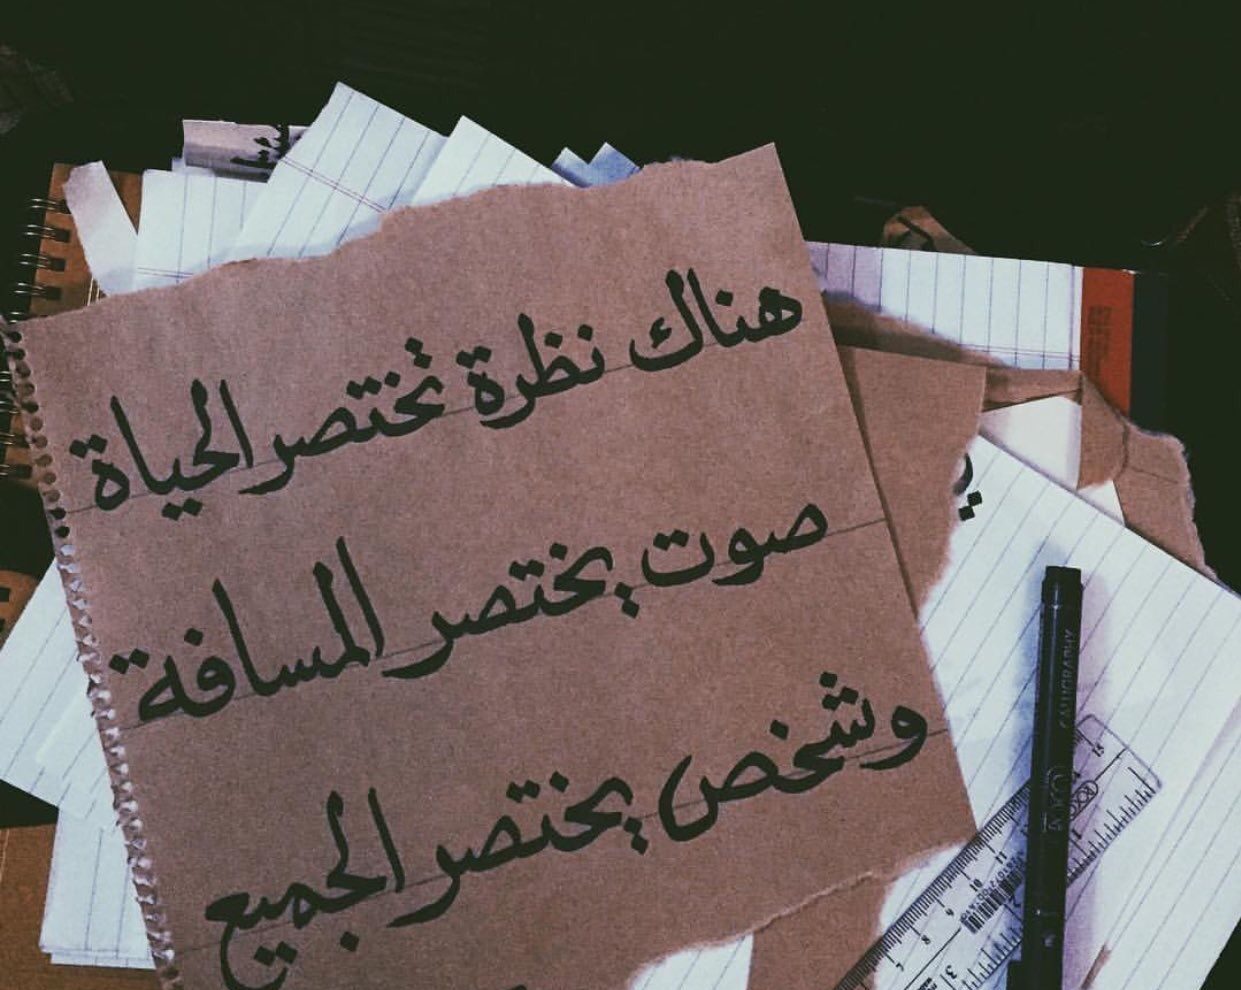 هناك نظرة تختصر الحياة
صوت يختصر المسافة
وشخص يختصر الجميع
CALLIGRAPHY